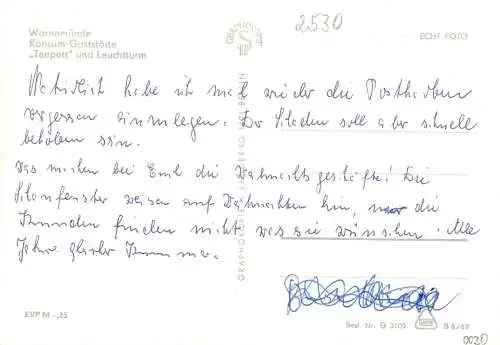 Warnemünde
Konsum-Gaststätte
„Teepott" und Leuchtturm
2530
GRAPHOKOPIE
ECHT FOTO
Natürlich habe ich mal wieder die Postkarten
vergessen einzulegen. Der Schaden soll aber schnell
behoben sein.
Was machen bei Euch die Weihnachtsgeschäfte? Die
Schaufenster weisen auf Weihnachten hin, nur die
Kunden finden nicht was sie wünschen. Alle
Jahre
EVP M -,25
Best.-Nr. G 3105
B 8/69
0030